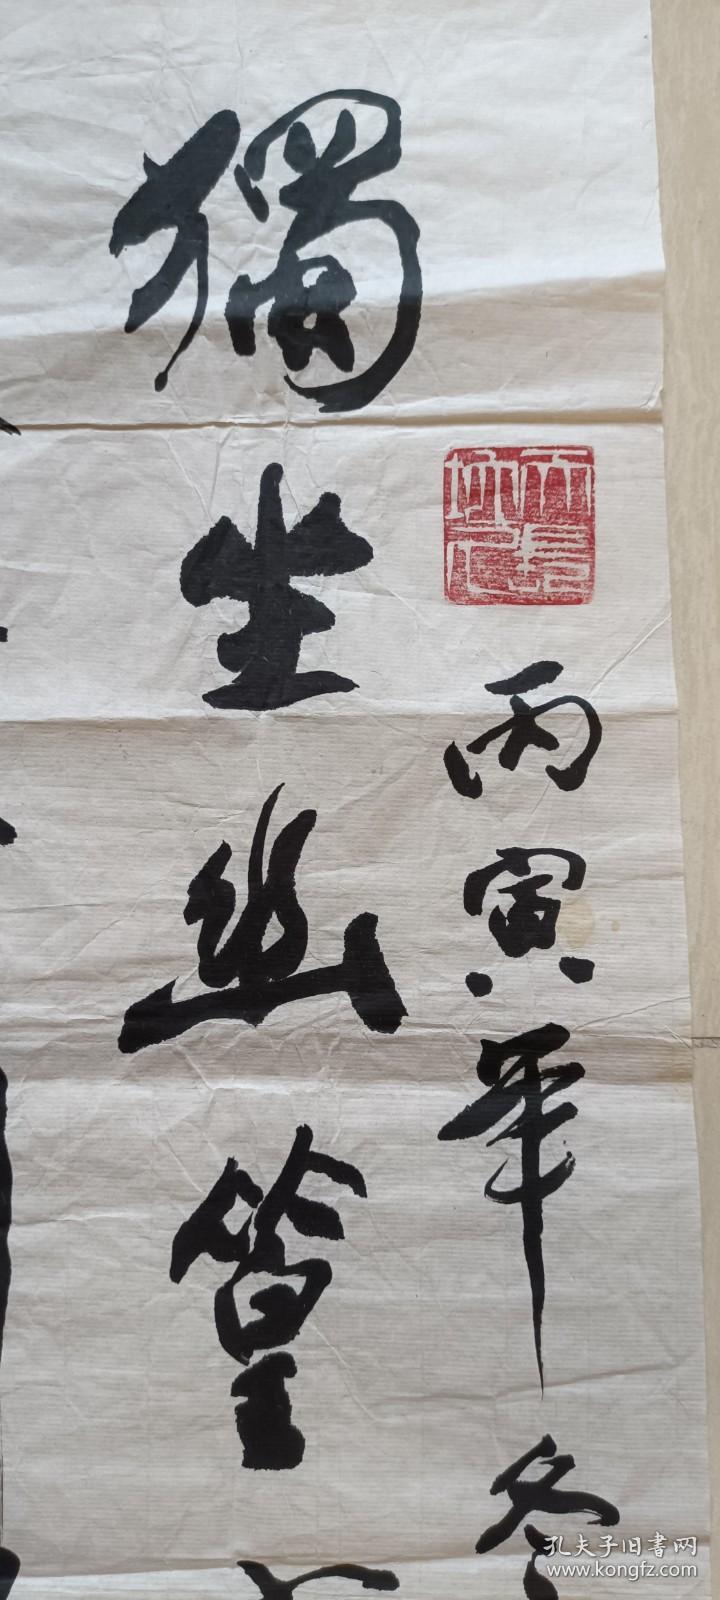 丙寅年冬
獨坐幽篁
孔夫子旧书网
www.kongfz.com